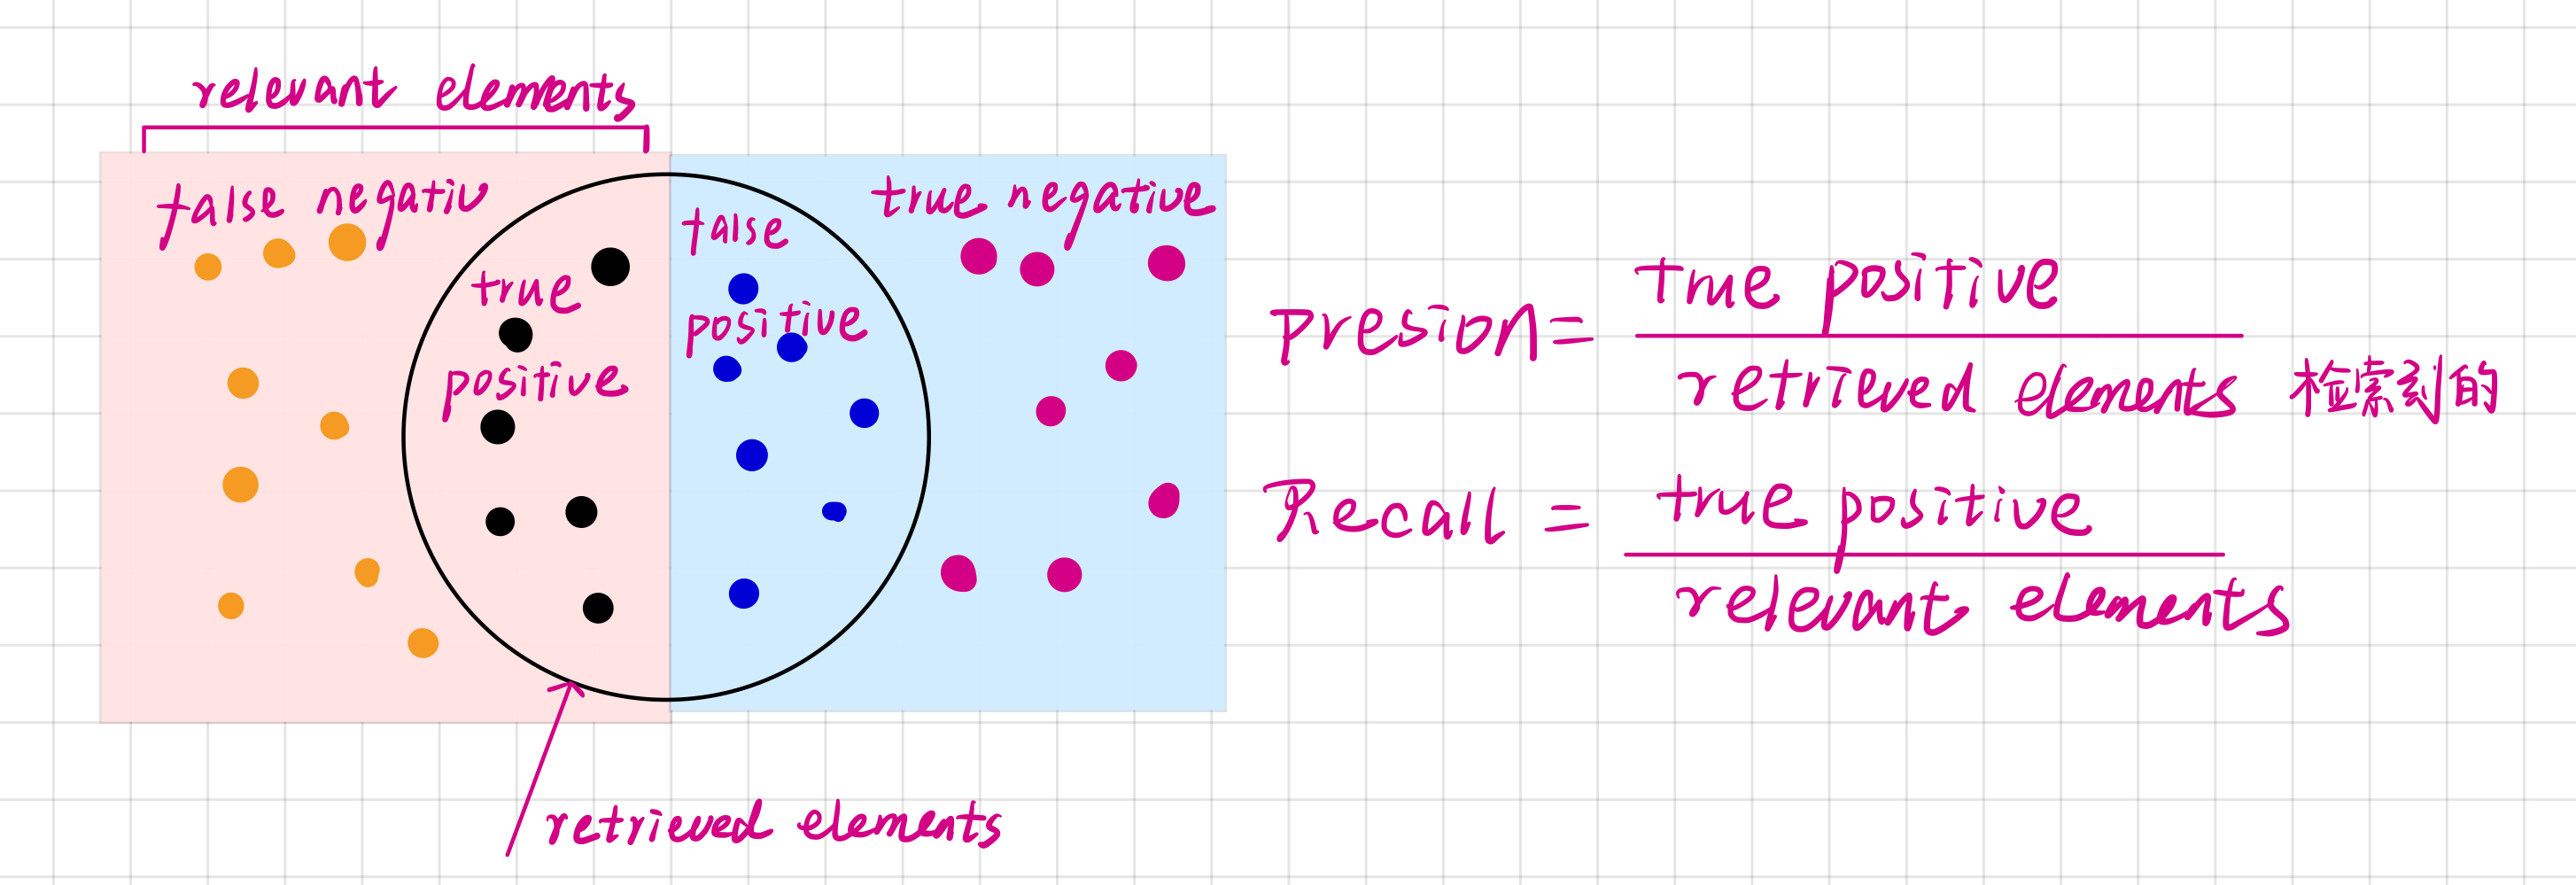 relevant elements
false negativ
true
positive
false
positive
true negative
retrieved elements
presion = true positive
retrieved elements 检索到的
Recall = true positive
relevant elements